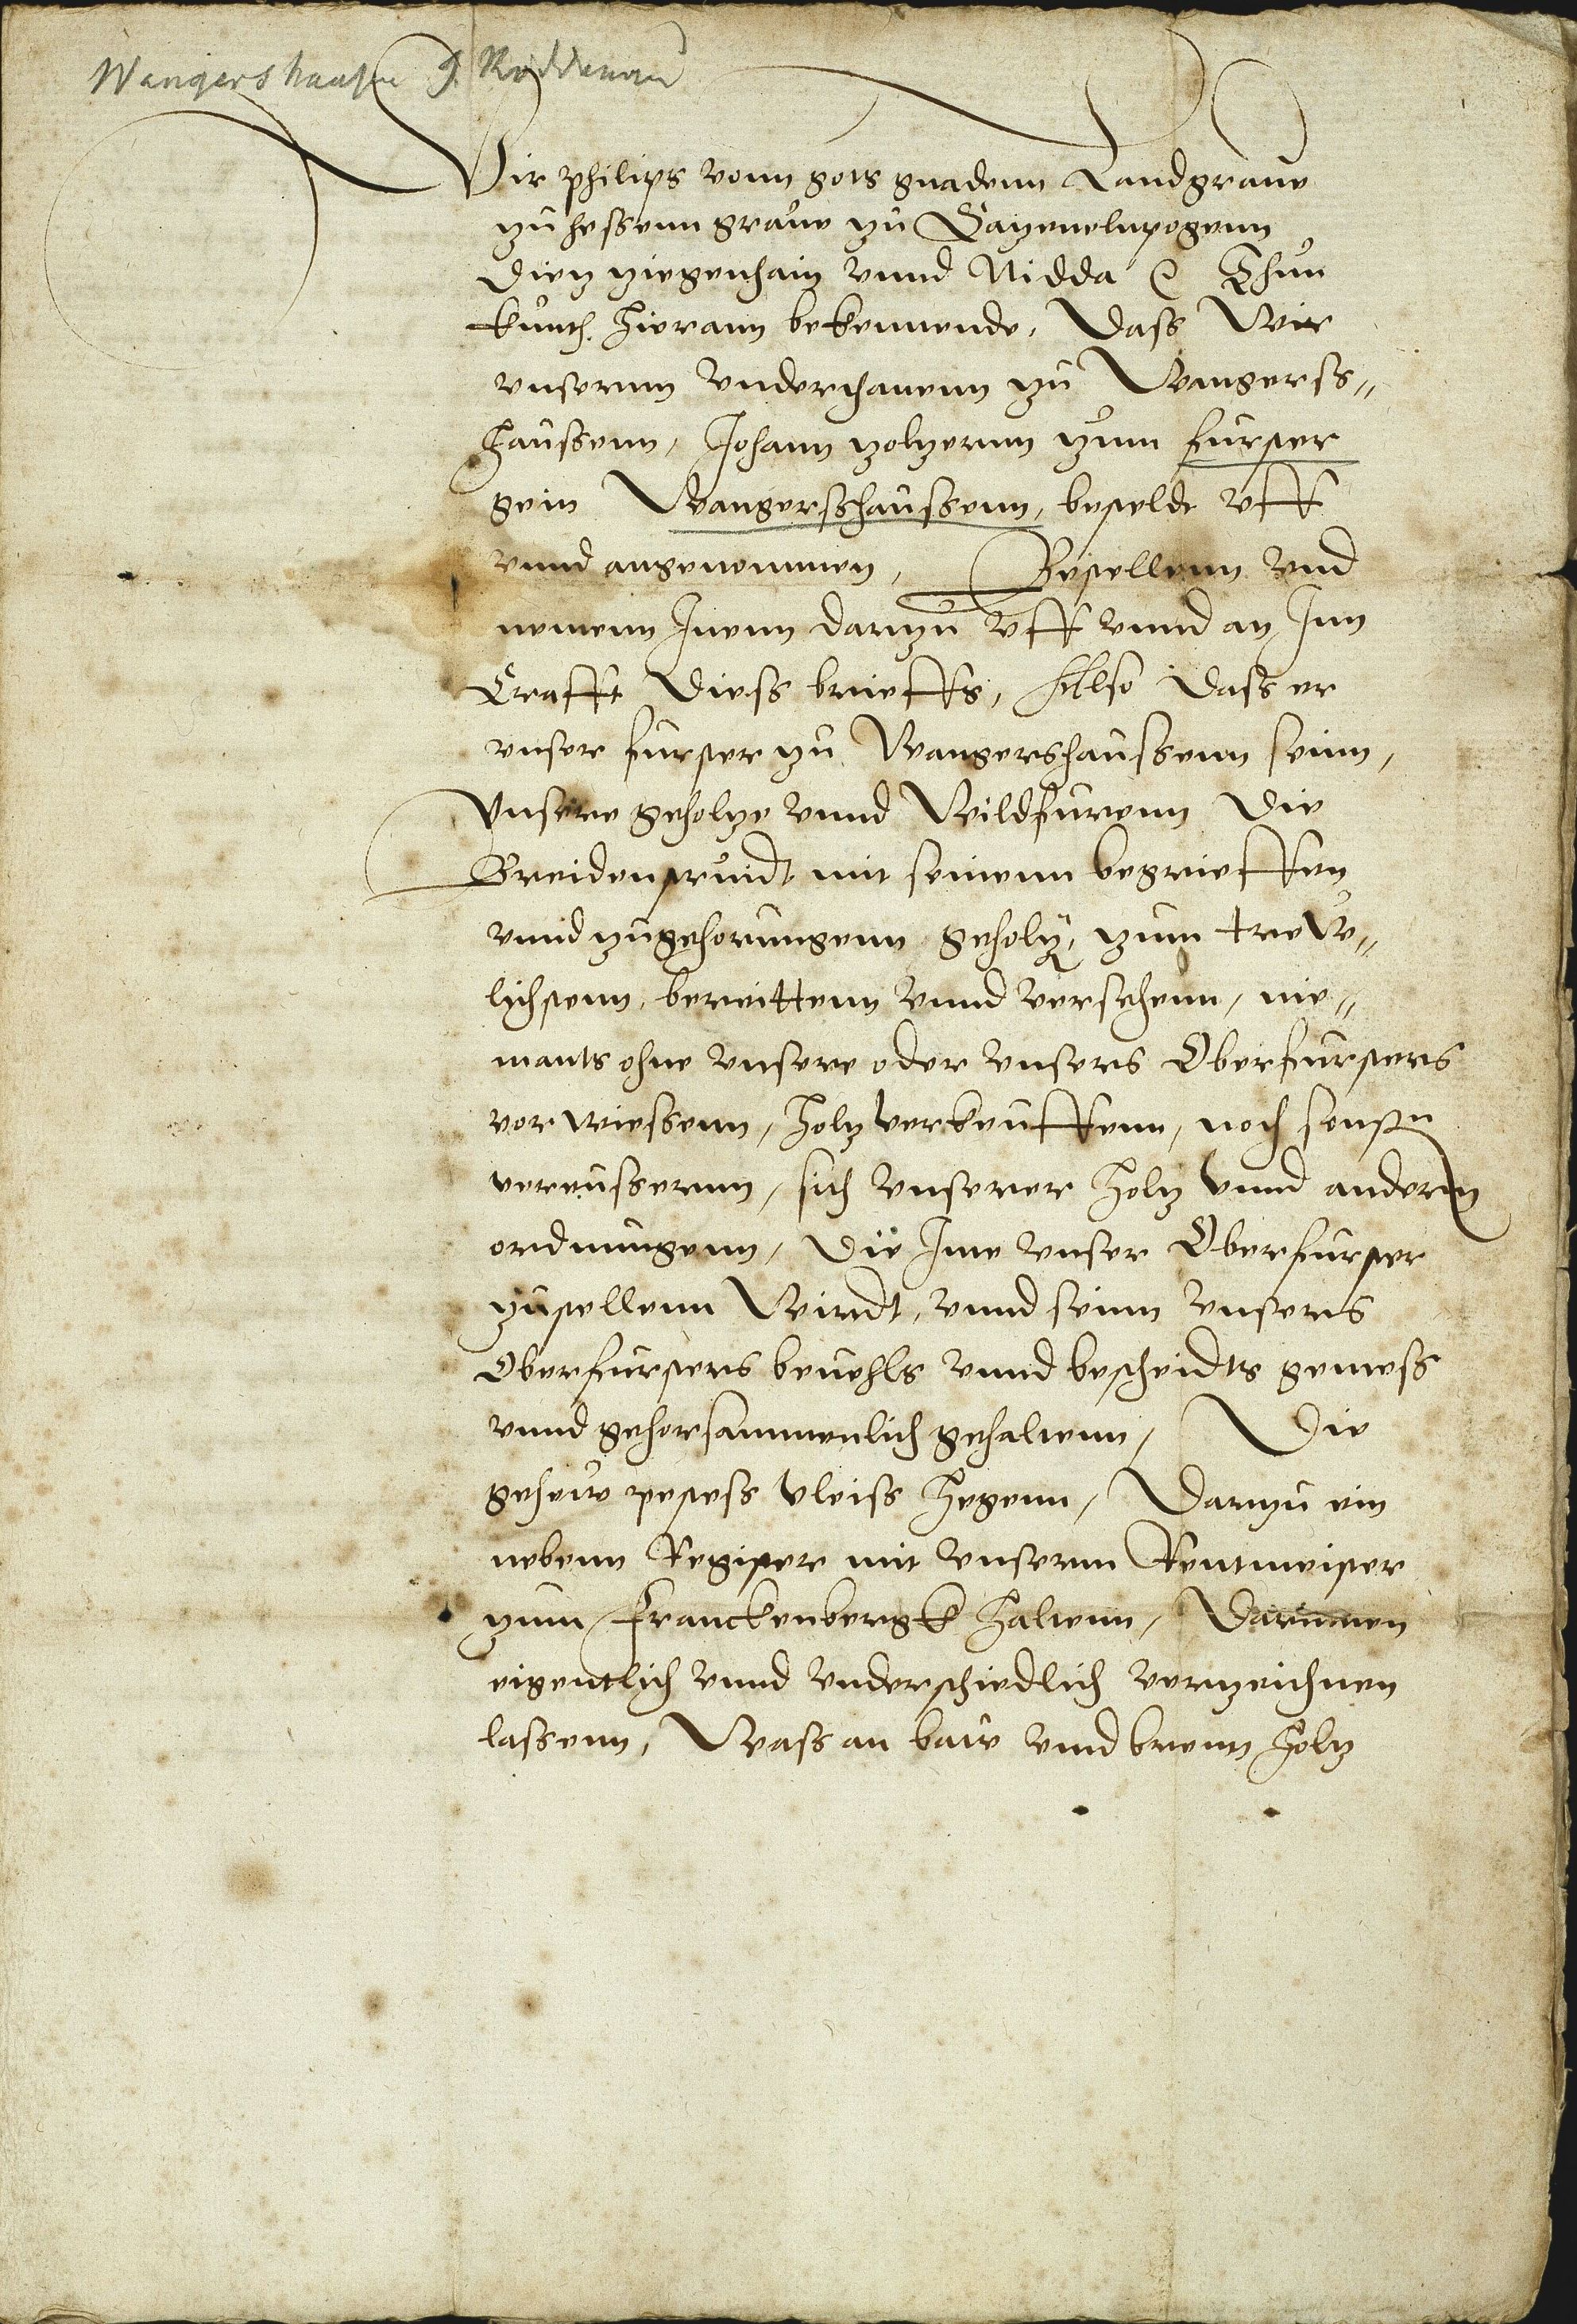 Wangershausen J. Roddenau
Wir philips vonn gots gnadenn Landgraue
zu hessenn graue zu Catzenelnpogenn
Dietz ziegenhain vnnd Nidda &c Thun
kunth hierann bekennende, Dass Wir
vnsernn vnderthanenn zu Wangerss„
haussenn, Johann zolzernn zum furster
gein Wangersshaussenn, besteldt vff
vnnd angenommen, Bestellenn vnd
nemenn Inenn darzu vff vnnd an Inn
Crafft diess brieffs, Allso dass er
vnser furster zu Wangershaussenn seinn,
Vnsere geholze vnnd Wildfurenn die
Breidenstruidt mit seinenn begrieffen
vnnd zugehorungenn geholtz, zum trew„
lichstenn, bereittenn vnnd versehenn, nie„
mants ohne vnsere oder vnsers Oberfursters
vorwiessenn, holtz verkeuffenn, noch sonstn
vereussernn, sich vnserer holtz vnnd andern
ordnungenn, die Ime vnser Oberfurster
zustellenn Wirdt, vnnd seinn vnsers
Oberfursters beuehls vnnd bescheidts gemess
vnnd gehorsammenlich gehaltenn, Die
geheue stetess vleiss hegenn, Darzu ein
nebenn Register mit vnserm Rentmeister
zum Franckenbergk haltenn, Darinnen
eigentlich vnnd vnderschiedlich vertzeichnen
lassenn, Wass an baw vnnd brenn holtz